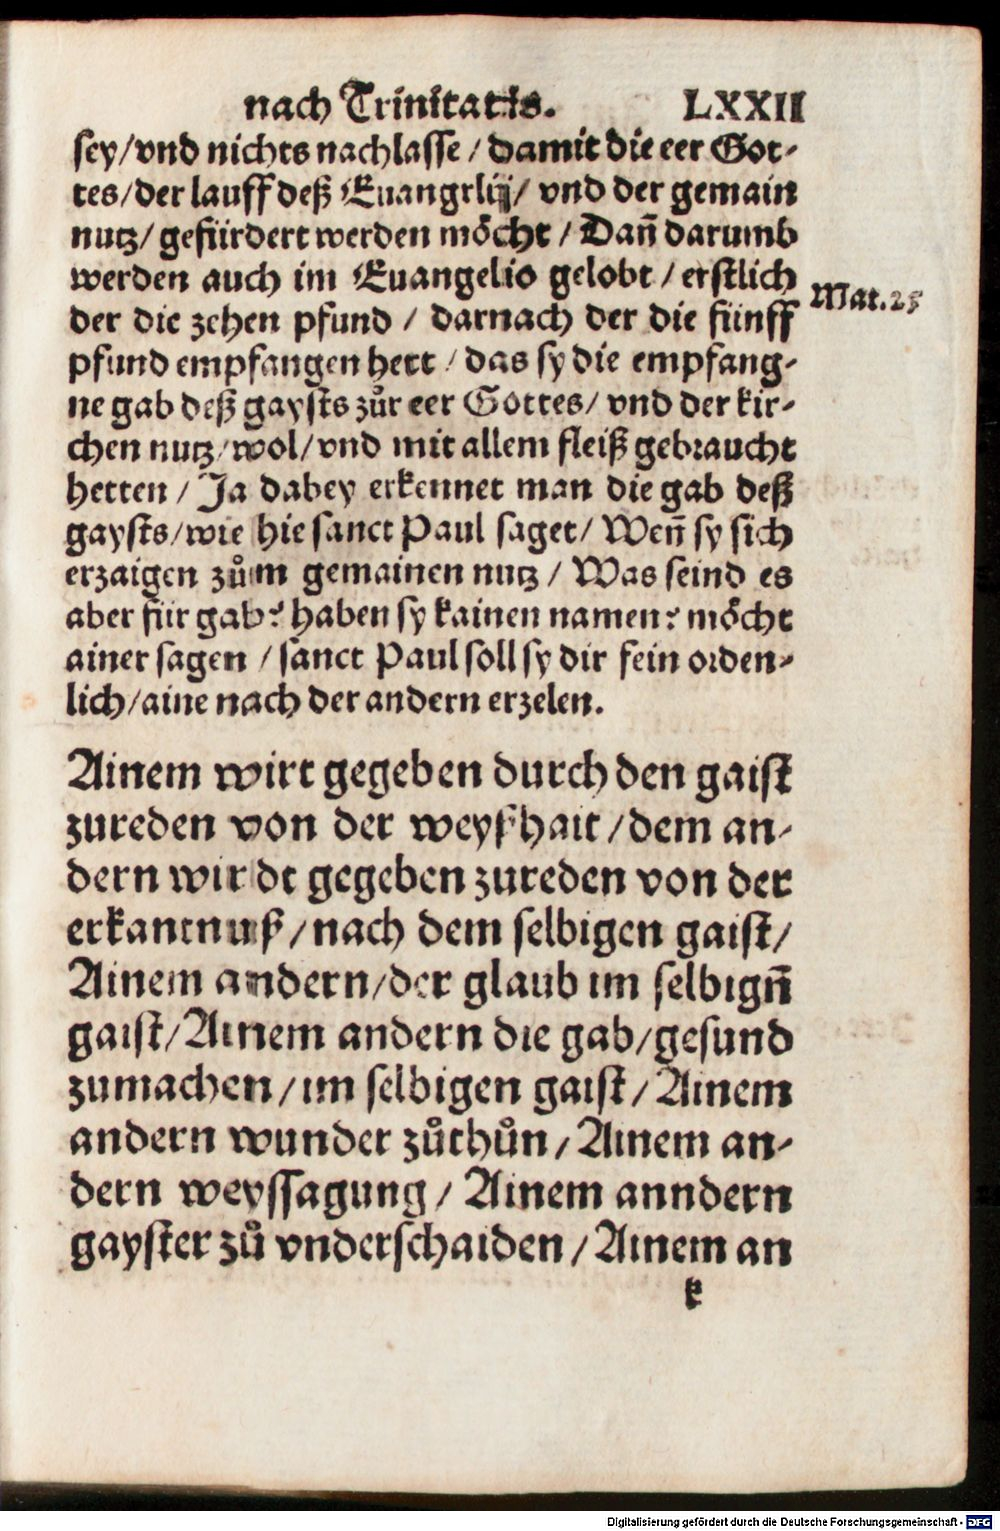 nach Trinitatis. LXXII
sey/vnd nichts nachlasse / damit die eer Got-
tes/der lauff deß Euangrlij/ vnd der gemain
nutz/ gefürdert werden möcht / Dañ darumb
werden auch im Euangelio gelobt / erstlich
Mat.25
der die zehen pfund / darnach der die fünff
pfund empfangen hett / das sy die empfang-
ne gab deß gaysts zůr eer Gottes/ vnd der kir-
chen nutz/wol/vnd mit allem fleiß gebraucht
hetten / Ja dabey erkennet man die gab deß
gaysts/wie hie sanct Paul saget/ Weñ sy sich
erzaigen zům gemainen nutz / Was seind es
aber für gab? haben sy kainen namen? möcht
ainer sagen / sanct Paul soll sy dir fein orden-
lich/aine nach der andern erzelen.
Ainem wirt gegeben durch den gaist
zureden von der weyßhait /dem an-
dern wirdt gegeben zureden von der
erkantnuß /nach dem selbigen gaist/
Ainem andern/der glaub im selbigñ
gaist/Ainem andern die gab/gesund
zumachen /im selbigen gaist / Ainem
andern wunder zůthůn / Ainem an-
dern weyssagung / Ainem anndern
gayster zů vnderschaiden / Ainem an
k
Digitalisierung gefördert durch die Deutsche Forschungsgemeinschaft - DFG